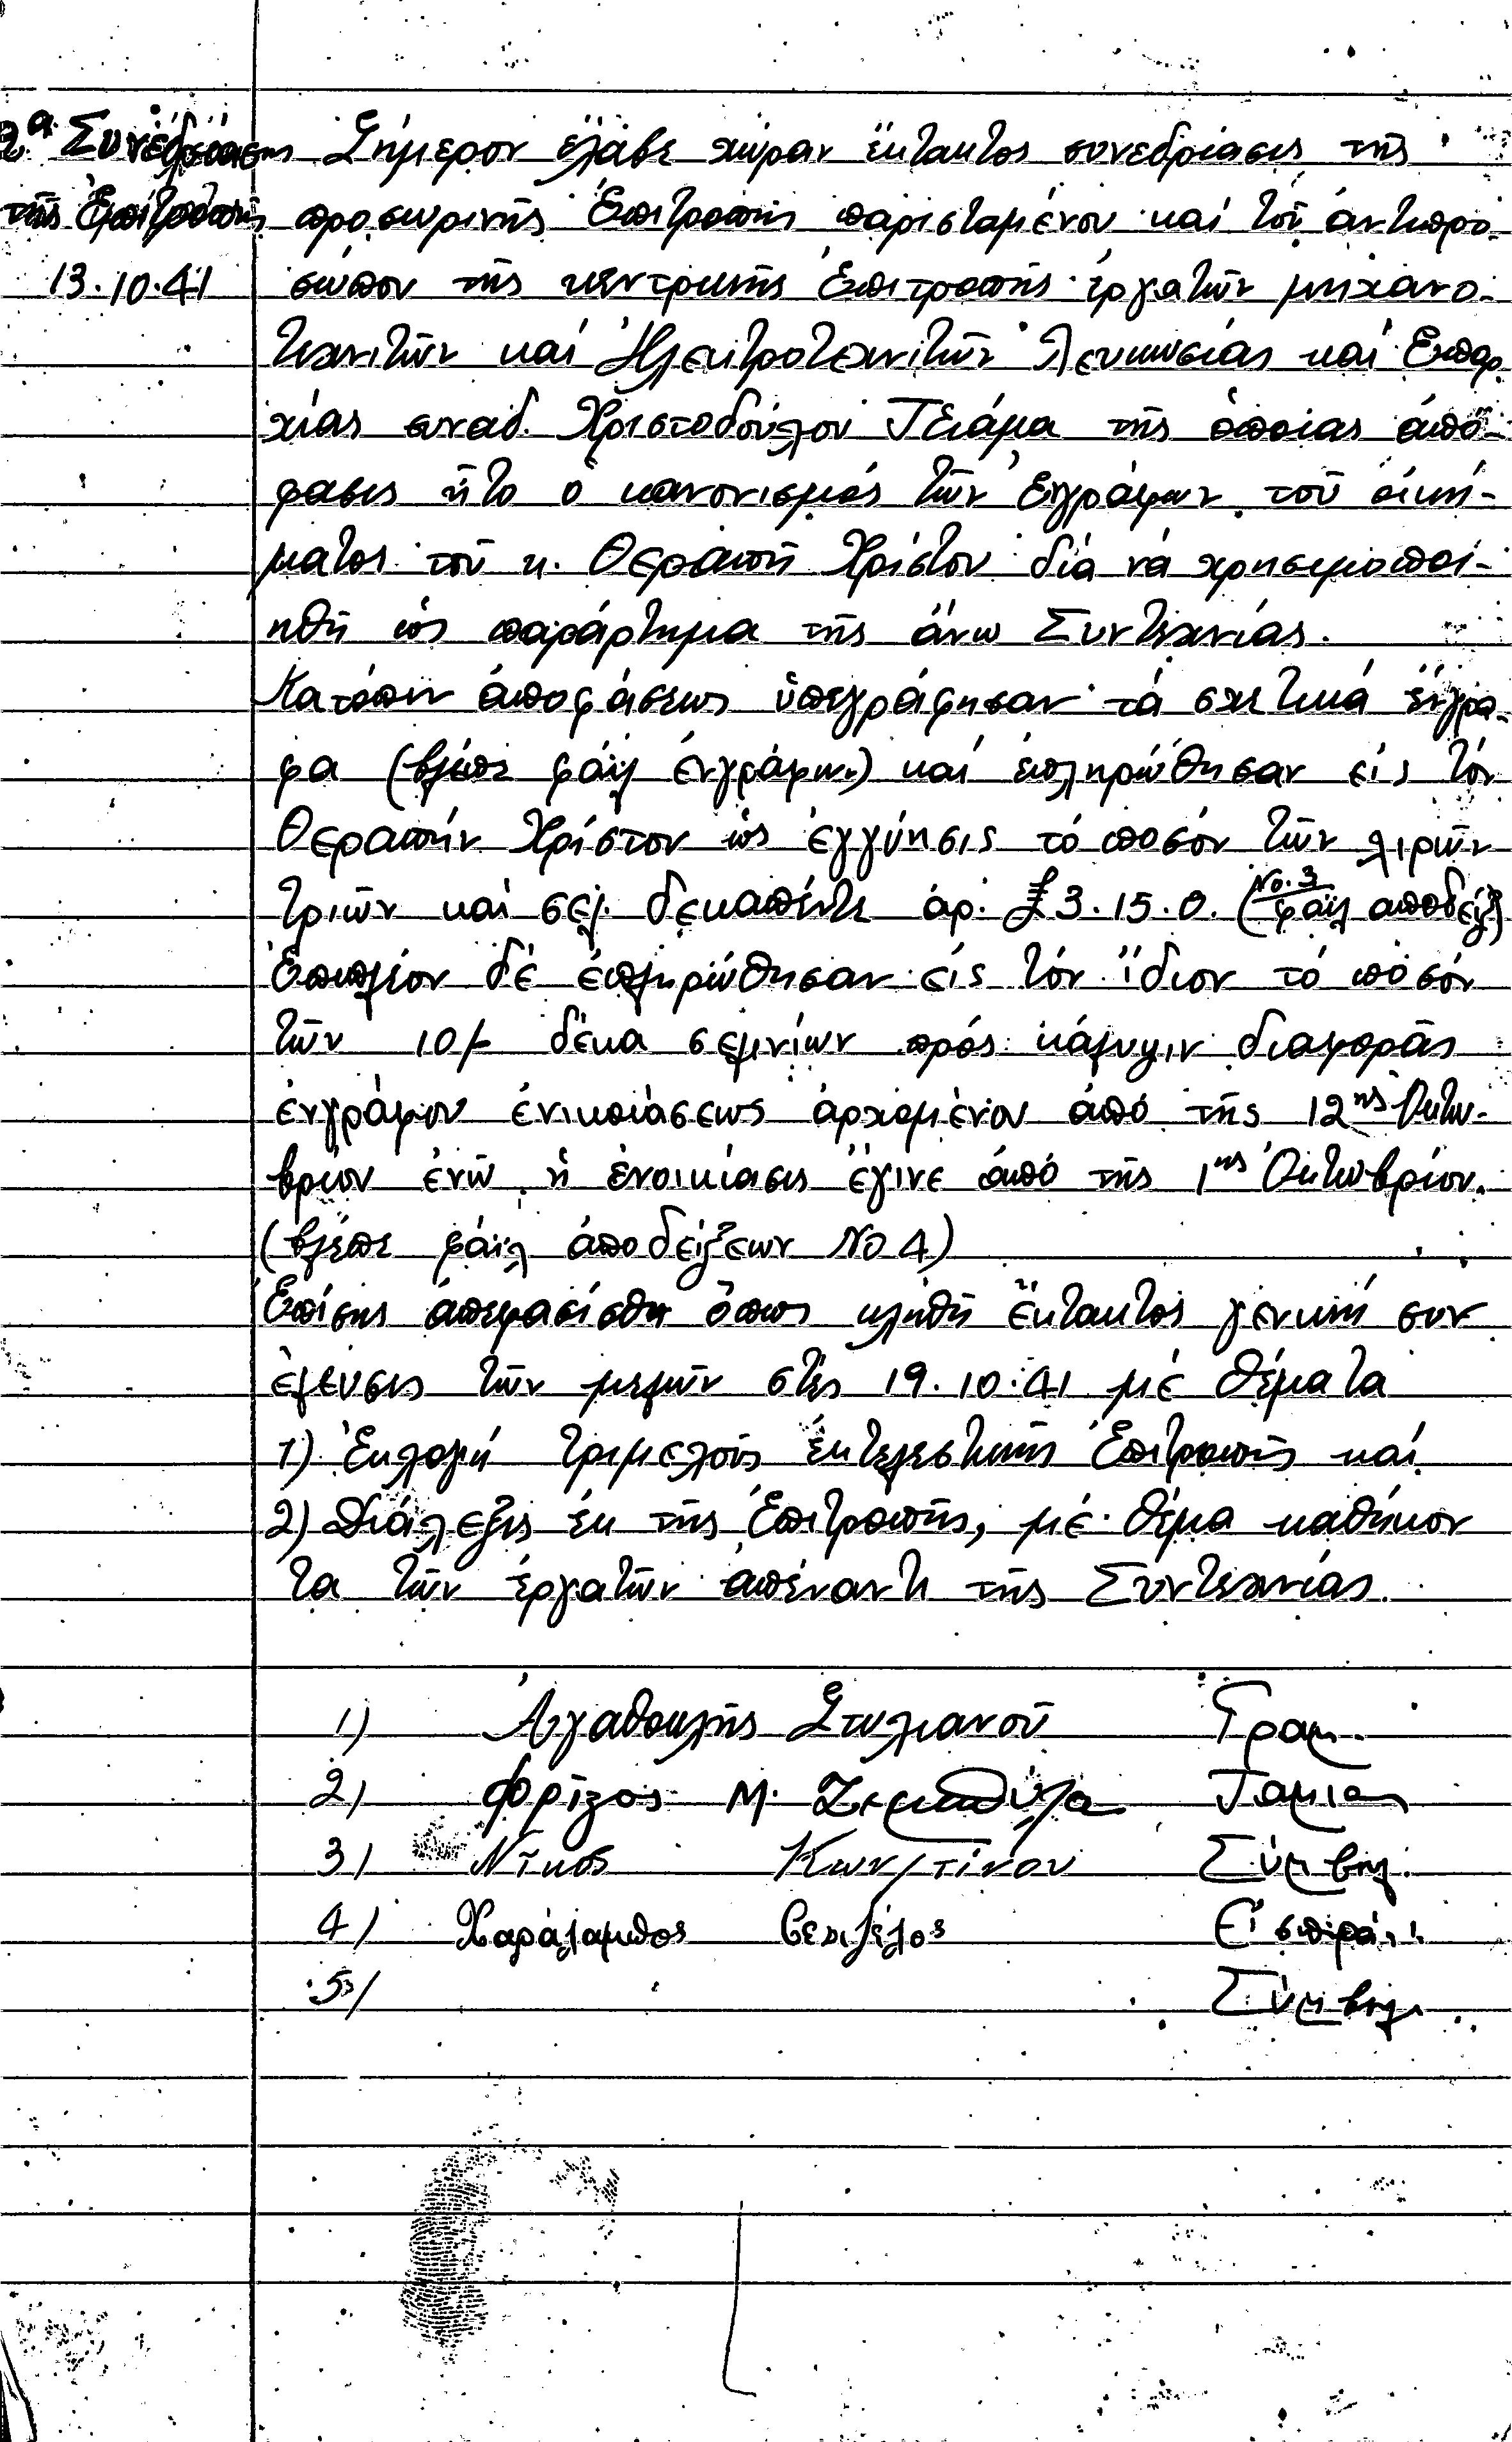 2α Συνεδρίασις
τῆς Ἐπιτροπῆς
13.10.41
Σήμερον ἔλαβε χώραν ἔκτακτος συνεδρίασις τῆς
προσωρινῆς Ἐπιτροπῆς παρισταμένου καί τοῦ ἀντιπρο-
σώπου τῆς κεντρικῆς Ἐπιτροπῆς ἐργατῶν μηχανο-
τεχνιτῶν καί Ἠλεκτροτεχνιτῶν Λευκωσίας καί Ἐπαρ
χίας συναδ. Χριστοδούλου Τσιάμα τῆς ὁποίας ἀπό-
φασις ἦτο ὁ κανονισμός τῶν ἐγγράφων τοῦ οἰκή-
ματος τοῦ κ. Θεραπῆ Χρίστου διά νά χρησιμοποι-
ηθῆ ὡς παράρτημα τῆς ἄνω Συντεχνίας.
Κατόπιν ἀποφάσεως ὑπεγράφησαν τά σχετικά ἔνγρα-
φα (βλέπε φάϊλ ἐνγράφων) καί ἐπληρώθησαν εἰς τόν
Θεραπήν Χρίστου ὡς ἐγγύησις τό ποσόν τῶν λιρῶν
τριῶν καί σελ. δεκαπέντε ἀρ. £3.15.0. (No. 3 φάϊλ ἀποδείξ)
Ἐπιπλέον δέ ἐπληρώθησαν εἰς τόν ἴδιον τό ποσόν
τῶν 10/- δέκα σελινίων πρός κάλυψιν διαφορᾶς
ἐνγράφου ἐνικιάσεως ἀρχομένου ἀπό τῆς 12ης Ὀκτω-
βρίου ἐνῶ ἡ ἐνοικίασις ἔγινε ἀπό τῆς 1ης Ὀκτωβρίου.
(βλέπε φάϊλ ἀποδείξεων No 4)
Ἐπίσης ἀπεφασίσθη ὅπως κληθῆ ἔκτακτος γενική συν
έλευσις τῶν μελῶν στές 19.10.41 μέ θέματα
1) Ἐκλογή τριμελοῦς ἐκτελεστικῆς Ἐπιτροπῆς καί
2) Διάλεξις ἐκ τῆς Ἐπιτροπῆς, μέ θέμα καθήκον
τα τῶν ἐργατῶν ἀπέναντι τῆς Συντεχνίας.
1) Ἀγαθοκλῆς Στυλιανοῦ Γραμ.
2) Φρίξος Μ. Ταμίας
3) Νῖκος Κων/τίνου Σύμβουλ.
4) Χαράλαμπος Εἰσπράκ.
5) Σύμβουλ.